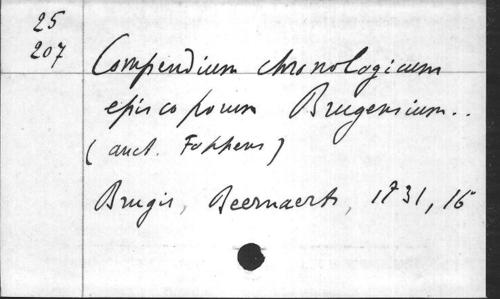 25
207
Compendium chronologicum
episcoporum Brugensium..
(auct. Foppens)
Brugis, Beernaerts, 1731, 16